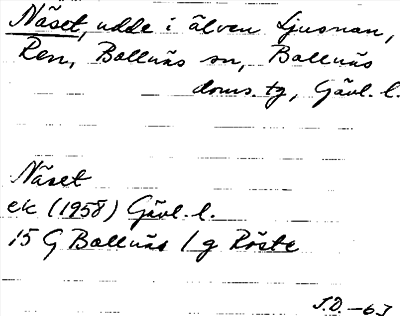 Näset, udde i älven Ljusnan,
Ren, Bollnäs sn, Bollnäs
doms. tg, Gävl. l.
Näset
ek (1958) Gävl. l.
15 G Bollnäs / g Röste
J.D. -63